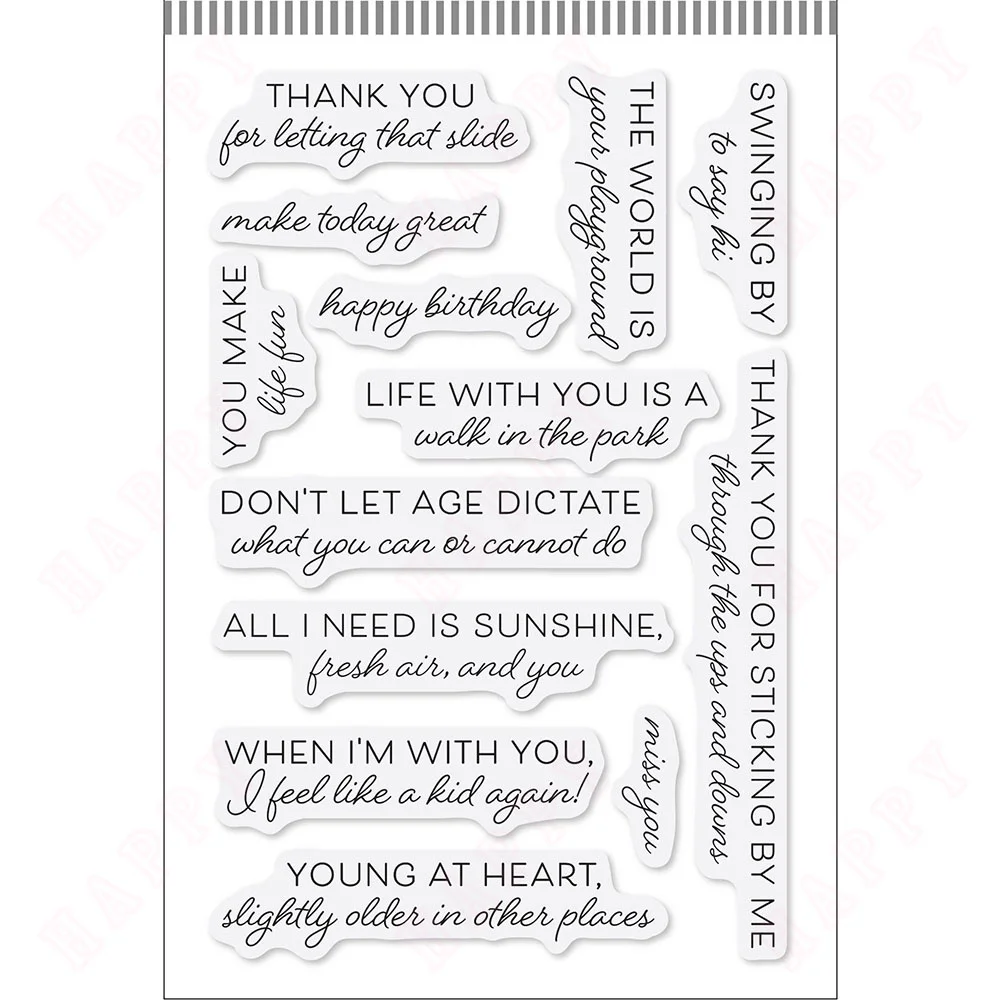 THANK YOU
for letting that slide
THE WORLD IS
your playground
SWINGING BY
to say hi
make today great
YOU MAKE
life fun
happy birthday
LIFE WITH YOU IS A
walk in the park
THANK YOU FOR STICKING BY ME
through the ups and downs
DON'T LET AGE DICTATE
what you can or cannot do
ALL I NEED IS SUNSHINE,
fresh air, and you
WHEN I'M WITH YOU,
I feel like a kid again!
miss you
YOUNG AT HEART,
slightly older in other places
HAPPY
HAPPY
HAPPY
HAPPY
HAPPY
HAPPY
HAPPY
HAPPY
HAPPY